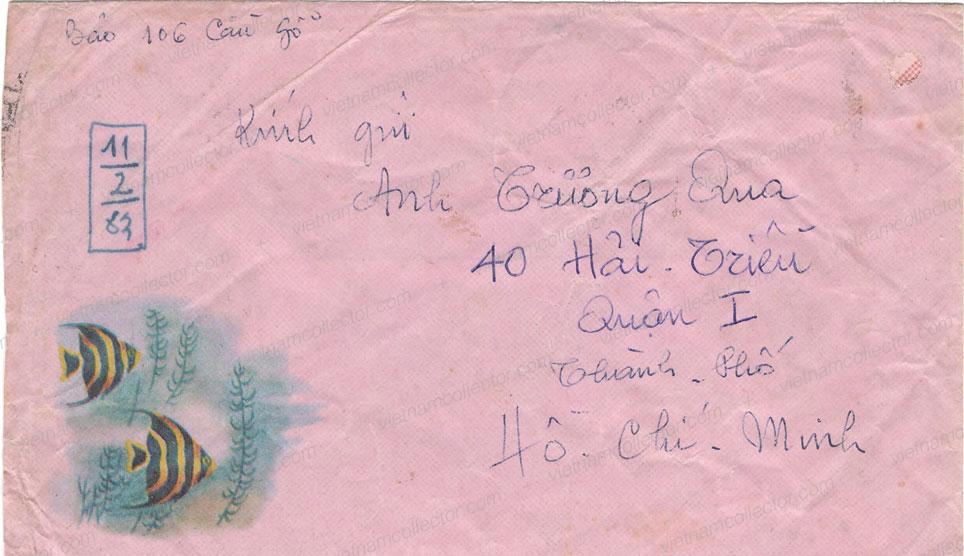 Bảo 106 Cầu Gỗ
Kính gửi
11
2
83
Anh Trương Qua
40 Hải - Triều
Quận I
Thành - Phố
Hồ - Chí - Minh
vietnamcollector.com